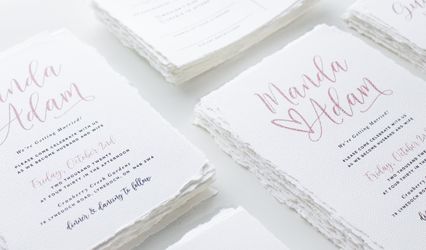 Manda
Adam
We're Getting Married!
PLEASE COME CELEBRATE WITH US
AS WE BECOME HUSBAND AND WIFE
Friday, October 2nd
TWO THOUSAND TWENTY
AT FOUR THIRTY IN THE AFTERNOON
Cranberry Creek Gardens
78 LYNEDOCH ROAD, LYNEDOCH, ON N4B 2W4
dinner & dancing to follow
Manda
Adam
We're Getting Married!
PLEASE COME CELEBRATE WITH US
AS WE BECOME HUSBAND AND WIFE
Friday, October 2nd
TWO THOUSAND TWENTY
AT FOUR THIRTY IN THE AFTERNOON
Cranberry Creek Gardens
78 LYNEDOCH ROAD, LYNEDOCH,
dinner & dancing